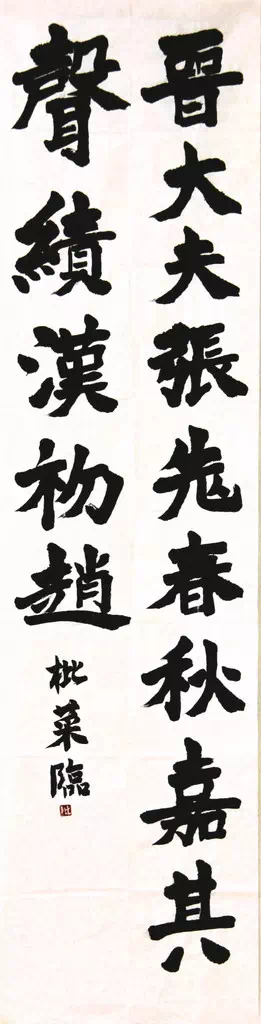 晋大夫張老春秋嘉其
聲績漢初趙
枇菜臨